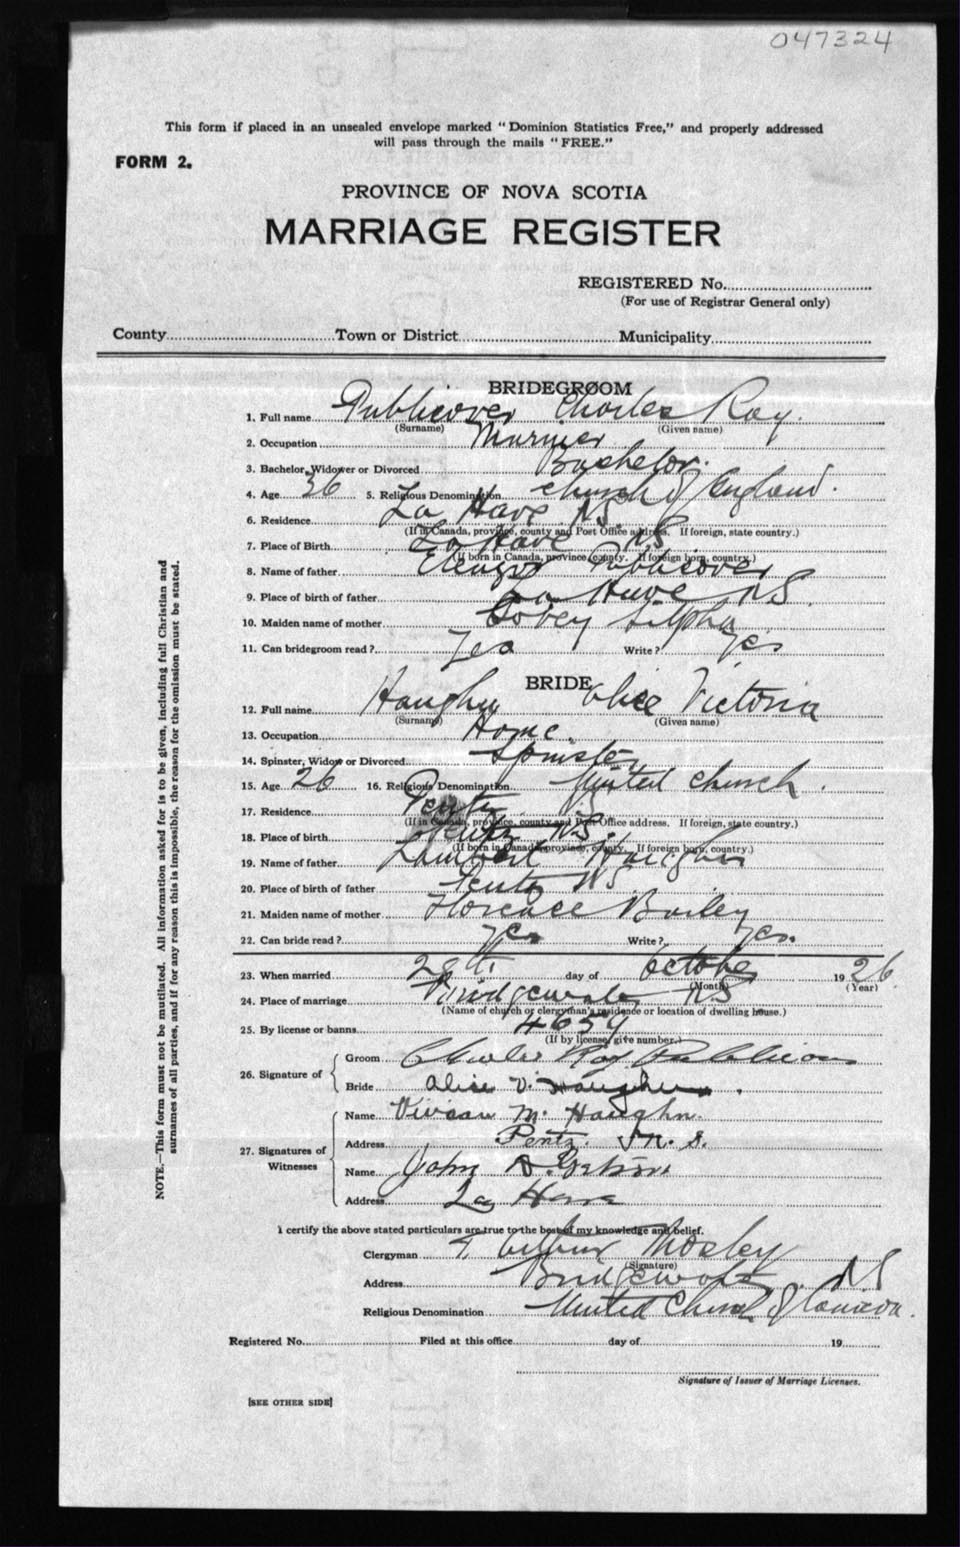 047324
This form if placed in an unsealed envelope marked "Dominion Statistics Free," and properly addressed
will pass through the mails "FREE."
FORM 2.
PROVINCE OF NOVA SCOTIA
MARRIAGE REGISTER
REGISTERED No.
(For use of Registrar General only)
County Town or District Municipality
BRIDEGROOM
1. Full name Publicover Charles Roy
(Surname) (Given name)
2. Occupation Mariner
3. Bachelor, Widower or Divorced Bachelor.
4. Age 36 5. Religious Denomination Church of England.
6. Residence La Have NS.
(If in Canada, province, county and Post Office address. If foreign, state country.)
7. Place of Birth La Have NS
(If born in Canada, province county. If foreign born, country.)
8. Name of father Publicover
9. Place of birth of father La Have NS.
10. Maiden name of mother
11. Can bridegroom read? Yes Write? Yes
BRIDE
12. Full name Haughn Alice Victoria
(Surname) (Given name)
13. Occupation Home.
14. Spinster, Widow or Divorced Spinster
15. Age 26 16. Religious Denomination United Church.
17. Residence Pentz NS
(If in Canada, province, county and Post Office address. If foreign, state country.)
18. Place of birth Pentz NS.
(If born in Canada, province, county. If foreign born, country.)
19. Name of father Lambert Haughn
20. Place of birth of father Pentz NS
21. Maiden name of mother Florence Bailey
22. Can bride read? Yes Write? Yes.
23. When married 28th day of October 1926
(Month) (Year)
24. Place of marriage Bridgewater NS
(Name of church or clergyman's residence or location of dwelling house.)
25. By license or banns 4659
(If by license, give number.)
26. Signature of
Groom Charles Roy Publicover
Bride Alice V. Haughn.
27. Signatures of Witnesses
Name Vivian M. Haughn.
Address Pentz. N. S.
Name John
Address La Have
I certify the above stated particulars are true to the best of my knowledge and belief.
Clergyman Wilbur Mosley
(Signature)
Address Bridgewater NS
Religious Denomination United Church of Canada.
Registered No. Filed at this office day of 19
Signature of Issuer of Marriage Licenses.
[SEE OTHER SIDE]
NOTE.—This form must not be mutilated. All information asked for is to be given, including full Christian and
surnames of all parties, and if for any reason this is impossible, the reason for the omission must be stated.